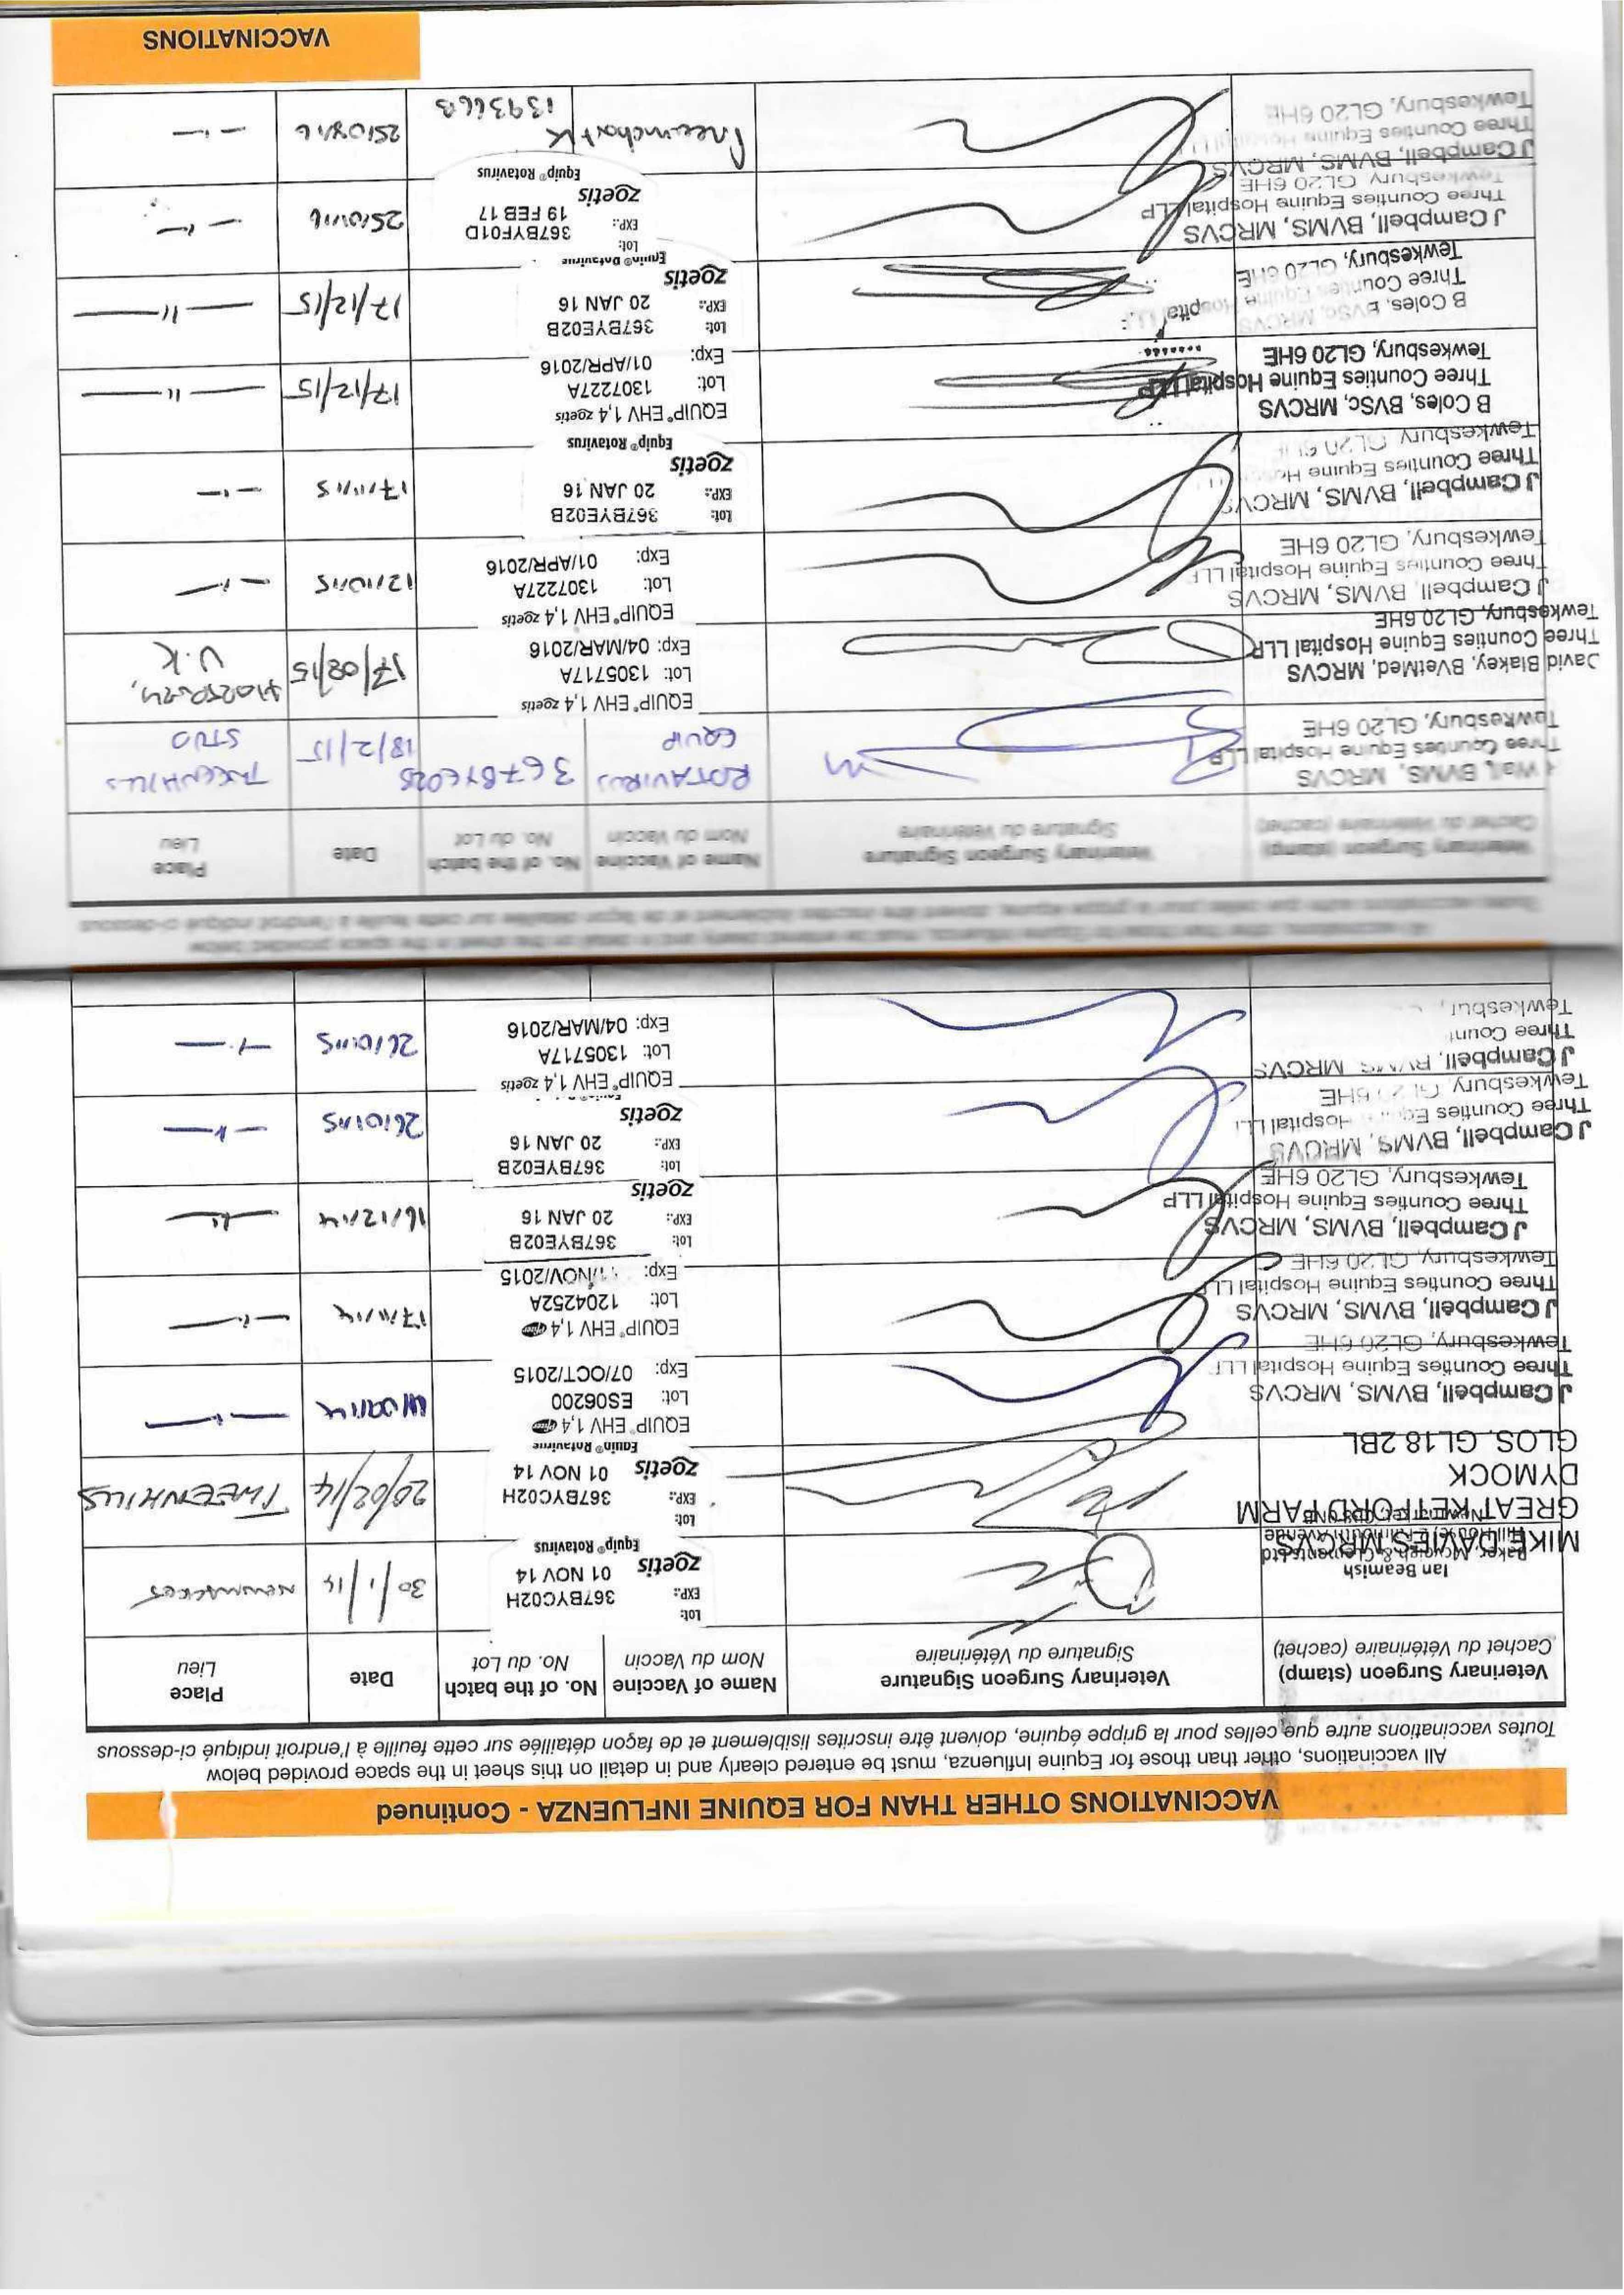 VACCINATIONS OTHER THAN FOR EQUINE INFLUENZA - Continued
All vaccinations, other than those for Equine Influenza, must be entered clearly and in detail on this sheet in the space provided below
Toutes vaccinations autre que celles pour la grippe équine, doivent être inscrites lisiblement et de façon détaillée sur cette feuille à l'endroit indiqué ci-dessous
Veterinary Surgeon (stamp) Veterinary Surgeon Signature Name of Vaccine No. of the batch Date Place
Cachet du Vétérinaire (cachet) Signature du Vétérinaire Nom du Vaccin No. du Lot Lieu
Ian Beamish
Baker, McVeigh & Clements Ltd
Lot:
EXP.: 367BYC02H
01 NOV 14
zoetis
Equip® Rotavirus
30/1/14
MIKE DAVIES MRCVS
GREAT KETFORD FARM
DYMOCK
GLOS. GL18 2BL
Lot:
EXP.: 367BYC02H
zoetis 01 NOV 14
Equip® Rotavirus
20/02/14 TWEENHILLS
J Campbell, BVMS, MRCVS
Three Counties Equine Hospital LLP
Tewkesbury, GL20 6HE
EQUIP® EHV 1,4 Pfizer
Lot: ES06200
Exp: 07/OCT/2015
J Campbell, BVMS, MRCVS
Three Counties Equine Hospital LLP
Tewkesbury, GL20 6HE
EQUIP® EHV 1,4 Pfizer
Lot: 1204252A
Exp: /NOV/2015
17/11/14
J Campbell, BVMS, MRCVS
Three Counties Equine Hospital LLP
Tewkesbury, GL20 6HE
Lot: 367BYE02B
EXP.: 20 JAN 16
zoetis
16/12/14
J Campbell, BVMS, MRCVS
Three Counties Equine Hospital LLP
Tewkesbury, GL20 6HE
Lot: 367BYE02B
EXP.: 20 JAN 16
zoetis
26/01/15
J Campbell, BVMS, MRCVS
Three Count
Tewkesbur
EQUIP® EHV 1,4 zoetis
Lot: 1305717A
Exp: 04/MAR/2016
26/01/15
All vaccinations, other than those for Equine Influenza, must be entered clearly and in detail on this sheet in the space provided below
Toutes vaccinations autre que celles pour la grippe équine, doivent être inscrites lisiblement et de façon détaillée sur cette feuille à l'endroit indiqué ci-dessous
Veterinary Surgeon (stamp) Veterinary Surgeon Signature Name of Vaccine No. of the batch Date Place
Cachet du Vétérinaire (cachet) Signature du Vétérinaire Nom du Vaccin No. du Lot Lieu
Wall, BVMS, MRCVS
Three Counties Equine Hospital LLP
Tewkesbury, GL20 6HE
ROTAVIRUS
EQUIP
18/2/15
TWEENHILLS
STUD
David Blakey, BVetMed, MRCVS
Three Counties Equine Hospital LLP
Tewkesbury, GL20 6HE
EQUIP® EHV 1,4 zoetis
Lot: 1305717A
Exp: 04/MAR/2016
17/08/15
U.K
J Campbell, BVMS, MRCVS
Three Counties Equine Hospital LLP
Tewkesbury, GL20 6HE
EQUIP® EHV 1,4 zoetis
Lot: 1307227A
Exp: 01/APR/2016
12/10/15
J Campbell, BVMS, MRCVS
Three Counties Equine Hos
Tewkesbury, GL20 6HE
Lot: 367BYE02B
EXP.: 20 JAN 16
zoetis
Equip® Rotavirus
17/11/15
B Coles, BVSc, MRCVS
Three Counties Equine Hospital LLP
Tewkesbury, GL20 6HE
EQUIP® EHV 1,4 zoetis
Lot: 1307227A
Exp: 01/APR/2016
17/12/15
B Coles, BVSc, MRCVS
Three Counties Equine Hospital LLP
Tewkesbury, GL20 6HE
Lot: 367BYE02B
EXP.: 20 JAN 16
zoetis
Equip® Rotavirus
17/12/15
J Campbell, BVMS, MRCVS
Three Counties Equine Hospital LLP
Tewkesbury, GL20 6HE
Lot: 367BYF01D
EXP.: 19 FEB 17
zoetis
Equip® Rotavirus
J Campbell, BVMS, MRCVS
Three Counties Equine Hospital LLP
Tewkesbury, GL20 6HE
139366B
VACCINATIONS